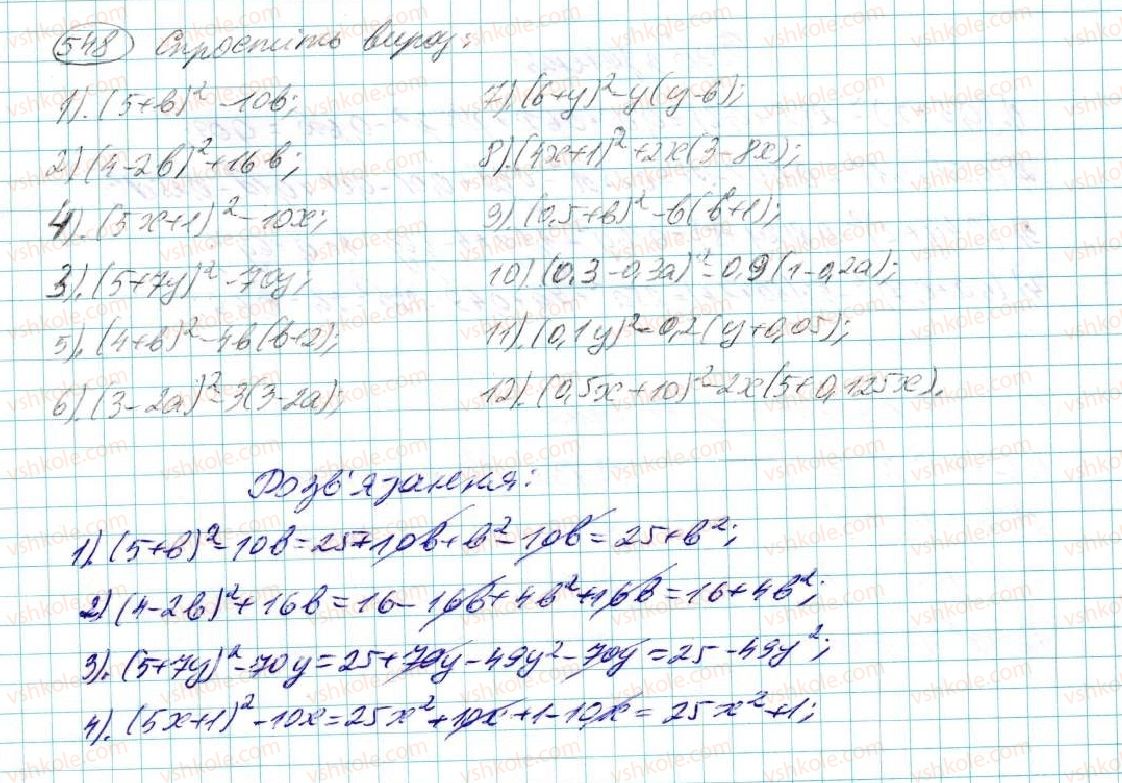 548 Спростіть вираз:
1). (5+b)² -10b;
2) (4-2b)²+16b;
4). (5x+1)²-10x;
3). (5+7y)²-70y;
5). (4+b)²-4b(b+2);
6). (3-2a)²-3(3-2a);
7). (6+y)²-y(y-6);
8). (4x+1)²+2x(3-8x);
9). (0,5+b)²-b(b+1);
10). (0,3-0,3a)²-0,9(1-0,2a);
11). (0,1y)²-0,2(y+0,05);
12). (0,5x+10)²-2x(5+0,125x).
Розв'язання:
1). (5+b)²-10b=25+10b+b²-10b=25+b²;
2) (4-2b)²+16b=16-16b+4b²+16b=16+4b²;
3). (5+7y)²-70y=25+70y-49y²-70y=25-49y²;
4). (5x+1)²-10x=25x²+10x+1-10x=25x²+1;